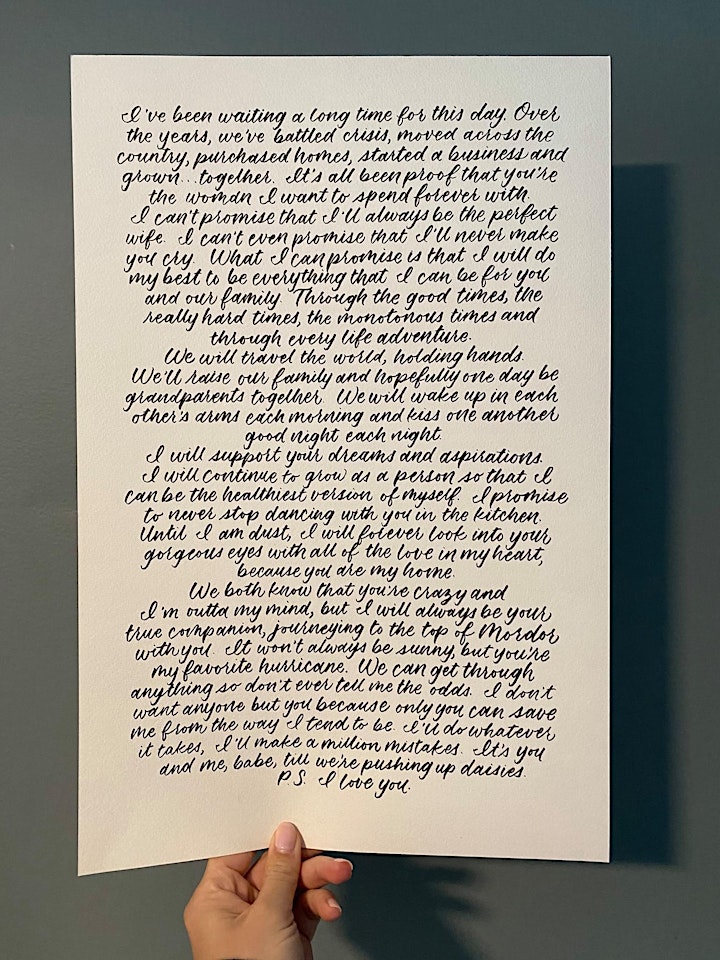 I've been waiting a long time for this day. Over
the years, we've battled crisis, moved across the
country, purchased homes, started a business and
grown...together. It's all been proof that you're
the woman I want to spend forever with.
I can't promise that I'll always be the perfect
wife. I can't even promise that I'll never make
you cry. What I can promise is that I will do
my best to be everything that I can be for you
and our family. Through the good times, the
really hard times, the monotonous times and
through every life adventure.
We will travel the world, holding hands.
We'll raise our family and hopefully one day be
grandparents together. We will wake up in each
other's arms each morning and kiss one another
good night each night.
I will support your dreams and aspirations.
I will continue to grow as a person so that I
can be the healthiest version of myself. I promise
to never stop dancing with you in the kitchen.
Until I am dust, I will forever look into your
gorgeous eyes with all of the love in my heart,
because you are my home.
We both know that you're crazy and
I'm outta my mind, but I will always be your
true companion, journeying to the top of Mordor
with you. It won't always be sunny, but you're
my favorite hurricane. We can get through
anything so don't ever tell me the odds. I don't
want anyone but you because only you can save
me from the way I tend to be. I'll do whatever
it takes, I'll make a million mistakes. It's you
and me, babe, till we're pushing up daisies.
P.S. I love you.